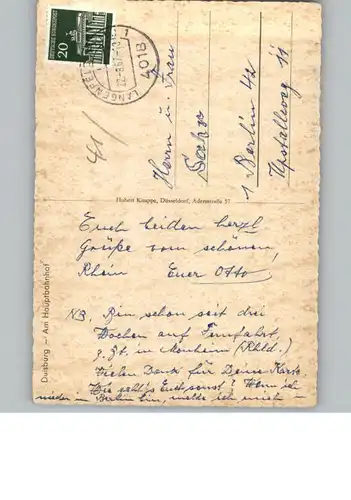 DEUTSCHE BUNDESPOST
20
LANGENFELD
4018
41/
Herrn u. Frau
1 Berlin 42
Hubert Knappe, Düsseldorf, Adersstraße 37
Euch beiden herzl
Grüße vom schönen,
Rhein Euer Otto
NB. Bin schon seit drei
Wochen auf Fernfahrt,
z. Zt. in Monheim (Rhld.)
Vielen Dank für Deine Karte.
Wie geht's Euch sonst? Wenn ich
wieder in Berlin bin, melde ich mich —
Duisburg — Am Hauptbahnhof